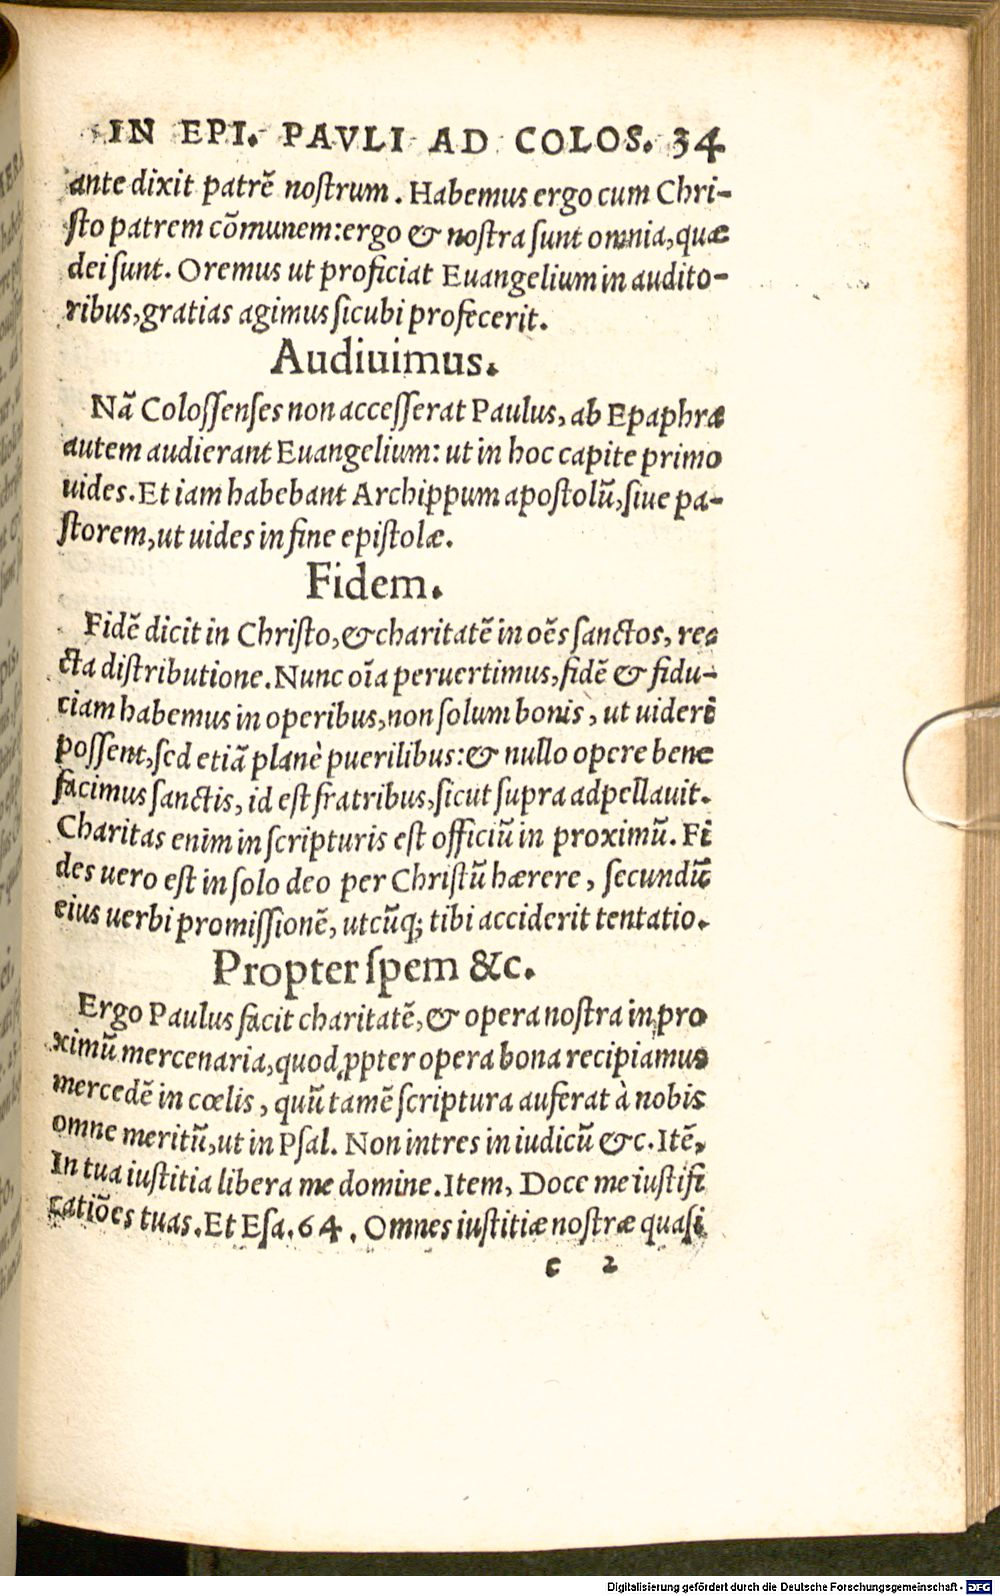 IN EPI. PAVLI AD COLOS. 34
ante dixit patrē nostrum. Habemus ergo cum Chri-
sto patrem cōmunem: ergo & nostra sunt omnia, quæ
dei sunt. Oremus ut proficiat Euangelium in audito-
ribus, gratias agimus sicubi profecerit.
Audiuimus.
Nā Colossenses non accesserat Paulus, ab Epaphra
autem audierant Euangelium: ut in hoc capite primo
uides. Et iam habebant Archippum apostolū, siue pa-
storem, ut uides in fine epistolæ.
Fidem.
Fidē dicit in Christo, & charitatē in oēs sanctos, re-
cta distributione. Nunc oīa peruertimus, fidē & fidu-
ciam habemus in operibus, non solum bonis, ut uiderī
possent, sed etiā planè puerilibus: & nullo opere bene
facimus sanctis, id est fratribus, sicut supra adpellauit.
Charitas enim in scripturis est officiū in proximū. Fi
des uero est in solo deo per Christū hærere, secundū
eius uerbi promissionē, utcūq; tibi acciderit tentatio.
Propter spem &c.
Ergo Paulus facit charitatē, & opera nostra in pro
ximū mercenaria, quod ꝓpter opera bona recipiamus
mercedē in cœlis, quū tamē scriptura auferat à nobis
omne meritū, ut in Psal. Non intres in iudicū &c. Itē,
In tua iustitia libera me domine. Item, Doce me iustifi
catiōes tuas. Et Esa. 64. Omnes iustitiæ nostræ quasi
c 2
Digitalisierung gefördert durch die Deutsche Forschungsgemeinschaft - DFG